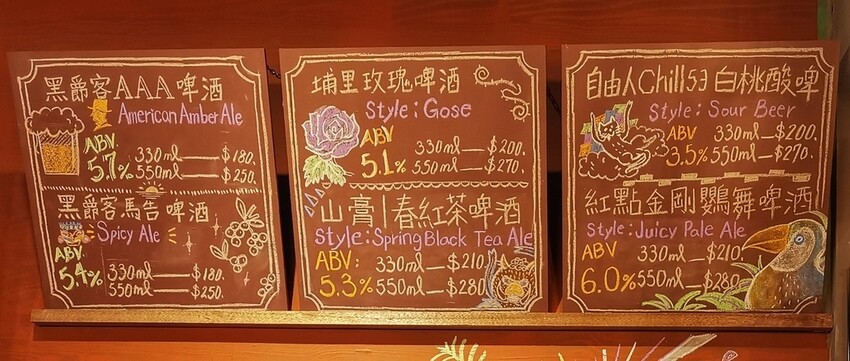 黑爵客AAA啤酒
American Amber Ale
ABV.
5.7%
330ml—$180.
550ml—$250.
黑爵客馬告啤酒
Spicy Ale
ABV.
5.4%
330ml—$180.
550ml—$250.
埔里玫瑰啤酒
Style:Gose
ABV
5.1%
330ml—$200.
550ml—$270.
山膏|春紅茶啤酒
Style:Spring Black Tea Ale
ABV:
5.3%
330ml—$210.
550ml—$280.
自由人Chill53白桃酸啤
Style:Sour Beer
ABV
3.5%
330ml—$200.
550ml—$270.
紅點金剛鸚舞啤酒
Style:Juicy Pale Ale
ABV
6.0%
330ml—$210.
550ml—$280.